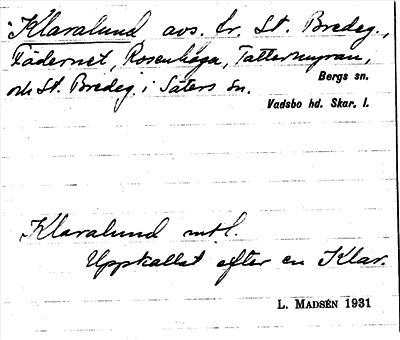 Klaralund avs. fr. St. Bredeg.,
Fädernet, Rosenhaga, Tattermyran,
och St. Bredeg. i Säters sn.
Bergs sn.
Vadsbo hd. Skar. l.
Klaralund mtl.
Uppkallat efter en Klar.
L. MADSÉN 1931